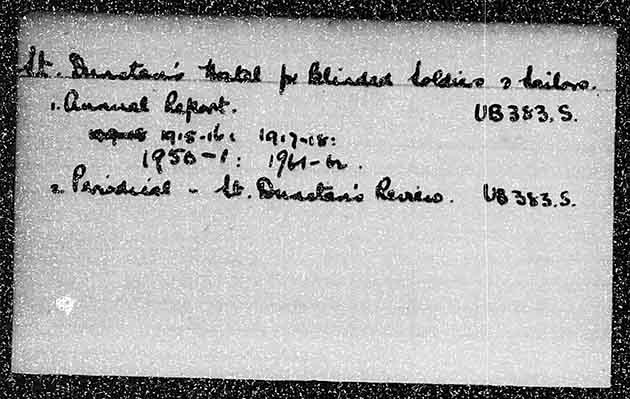 St. Dunstan's Hostel for Blinded Soldiers & Sailors.
1. Annual Report. UB383.S.
1915-16: 1917-18:
1950-1: 1961-62.
2. Periodical - St. Dunstan's Review. UB383.S.